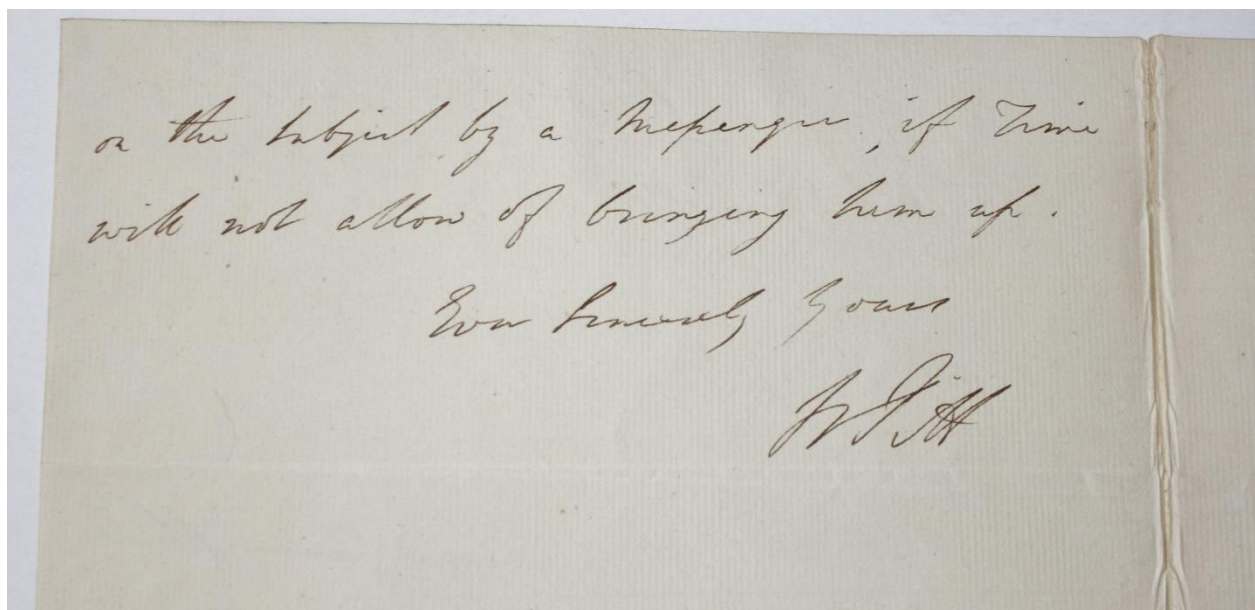 on the Subject by a Messenger, if Time
will not allow of bringing him up.
Ever Sincerely Yours
W Pitt